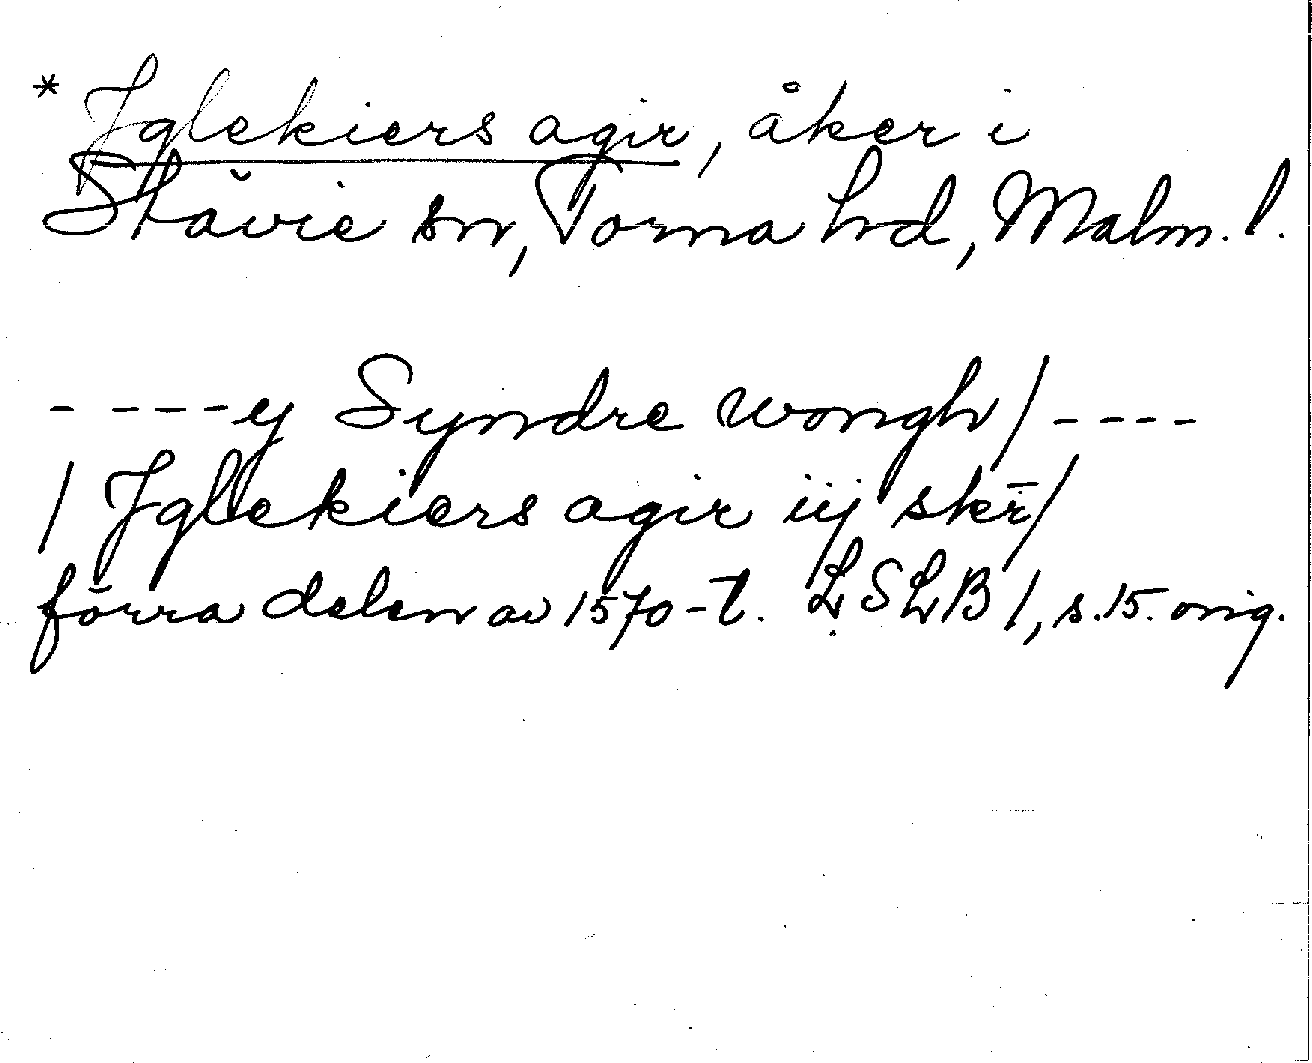 * Jglekiers agir, åker i
Stävie sn, Torna hd, Malm. l.
- ---- ej Syndre wongh/----
/ Jglekiers agir iij skr̄/
förra delen av 1570-t. LSLB 1, s. 15. orig.